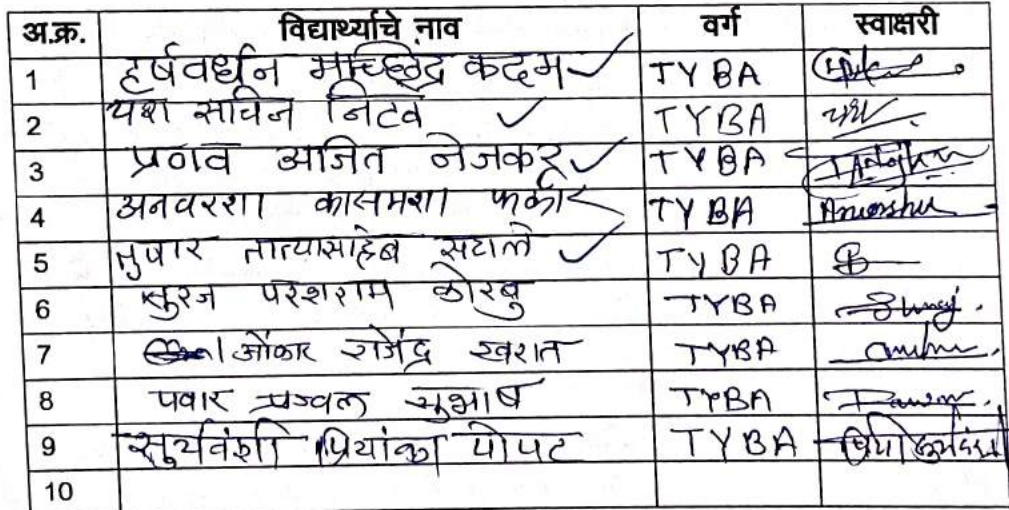 अ.क्र. विद्यार्थ्याचे नाव वर्ग स्वाक्षरी
1 हर्षवर्धन मच्छिंद्र कदम TYBA
2 यश सचिन निटवे TYBA यश
3 प्रणव अजित नेजकर TYBA
4 अनवरशा कासमशा फकीर TYBA
5 तुषार तात्यासाहेब सटाले TYBA
6 सुरज परशराम कोरबु TYBA Suraj
7 ओंकार राजेंद्र खरात TYBA
8 पवार प्रज्वल सुभाष TYBA Pawar
9 सुर्यवंशी प्रियांका पोपट TYBA
10